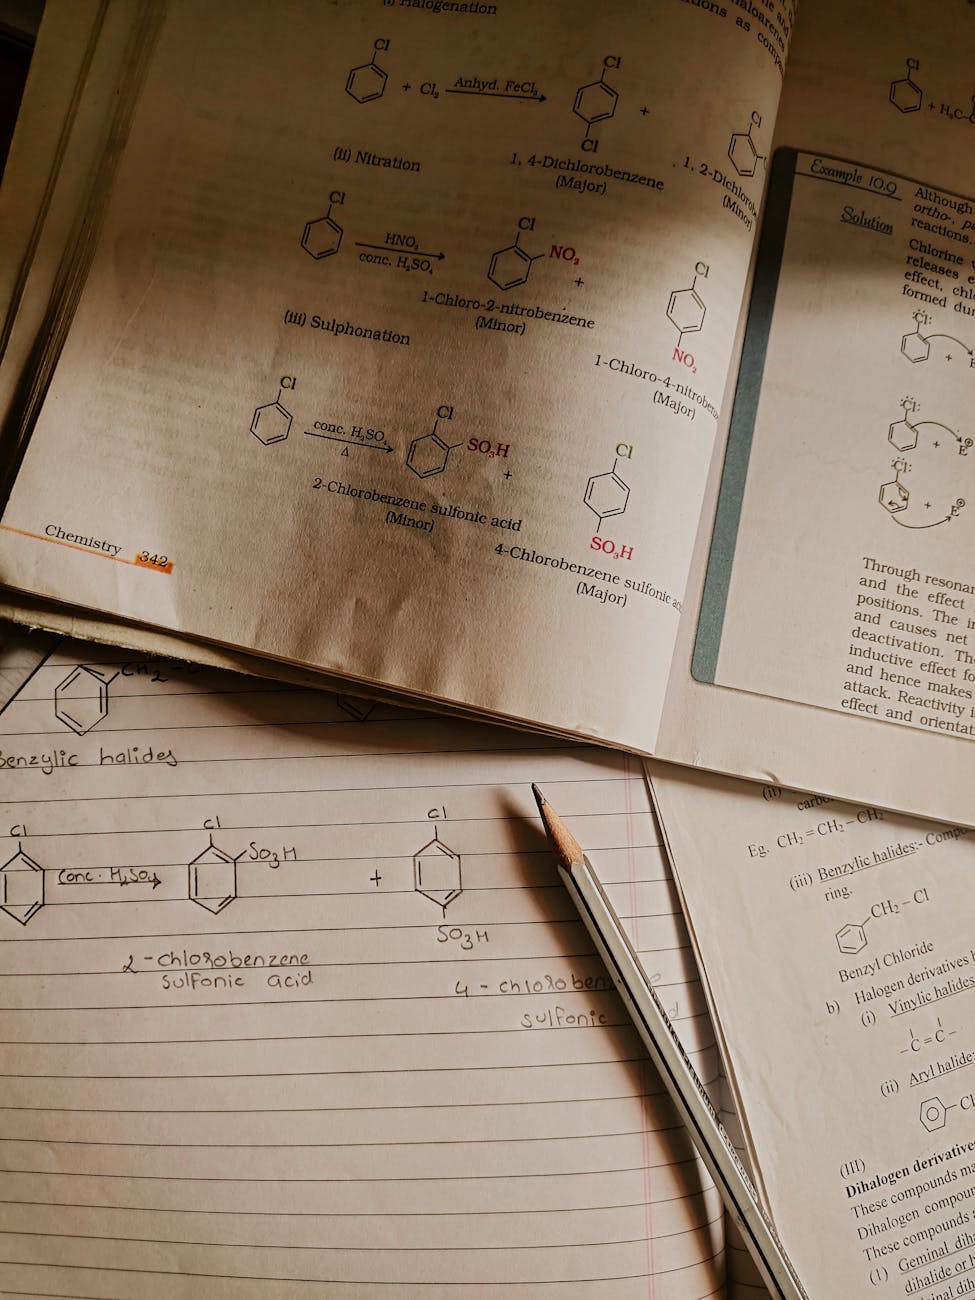 (i) Halogenation
Cl
+ Cl₂ Anhyd. FeCl₃
Cl
Cl
+
Cl
1, 4-Dichlorobenzene
(Major)
1, 2-Dichlorob
(Minor)
(ii) Nitration
Cl
HNO₃
conc. H₂SO₄
Cl
NO₂
+
Cl
NO₂
1-Chloro-2-nitrobenzene
(Minor)
1-Chloro-4-nitroben
(Major)
(iii) Sulphonation
Cl
conc. H₂SO₄
Δ
Cl
SO₃H
+
Cl
SO₃H
2-Chlorobenzene sulfonic acid
(Minor)
4-Chlorobenzene sulfonic
(Major)
Chemistry 342
Cl
+ H₃C-
Example 10.9
Although
ortho-,
reactions.
Solution
Chlorine
releases
effect,
formed
:Cl:
+
:Cl:
+ E⊕
:Cl:
+ E⊕
Through
and the effect
positions. The
and causes net
deactivation.
inductive effect
and hence makes
attack. Reactivity
effect and
CH₂ -
Benzylic halides
Cl
Conc. H₂SO₄
Cl
SO₃H
+
Cl
SO₃H
2-chlorobenzene
sulfonic acid
4-chloroben
sulfonic
(ii)
Eg. CH₂=CH₂-CH₂
(iii) Benzylic halides:-
ring.
CH₂-Cl
Benzyl Chloride
b) Halogen derivatives
(i) Vinylic halides
-C=C-
(ii) Aryl halide
-Cl
(III)
Dihalogen derivative
These compounds
Dihalogen
These compounds
(1) Geminal
dihalide or